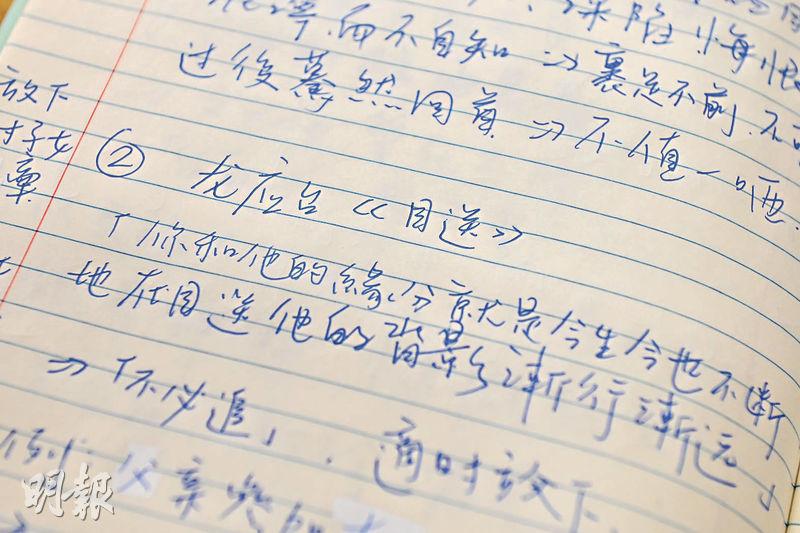 而不自知 => 裹足不前.不
过後蓦然回首 => 不值一哂.
放下
子女
② 龙应台《目送》
「你和他的緣分就是今生今世不斷
地在目送他的背影漸行漸远」
=>「不必追」, 適时放下.
例: 父亲
明報